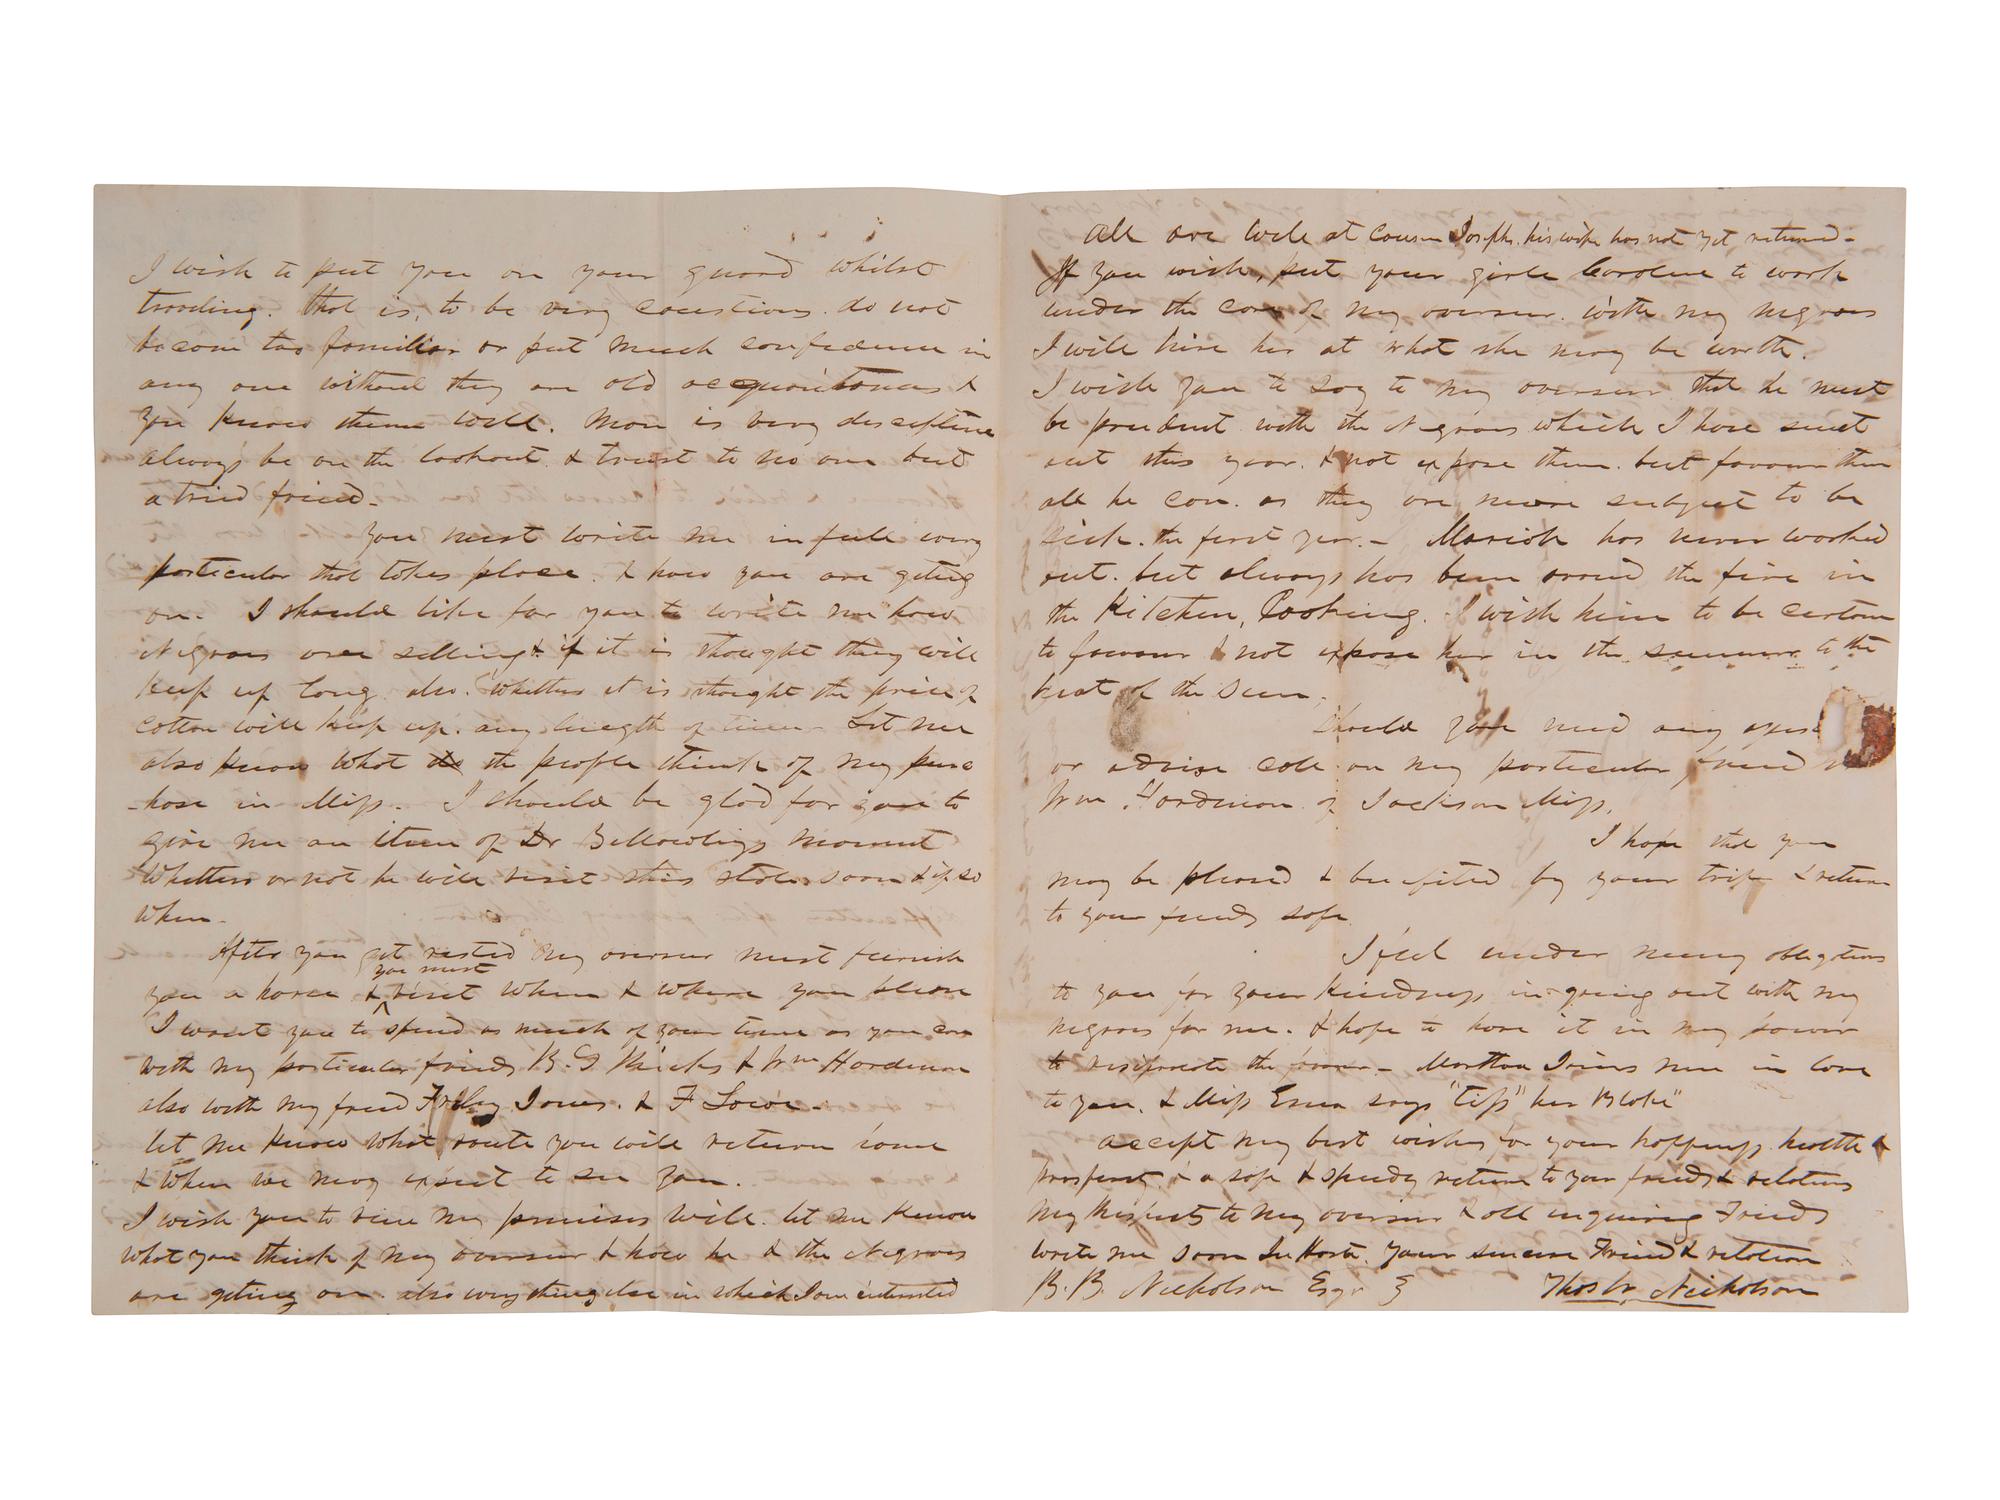 I wish to put you on your guard whilst
trading. that is, to be very caustious. do not
becom too familiar or put much confidence in
any one without they are old acquaintances &
you know them well. Man is very
always be on the lookout & trust to no one but
a tried friend -
You must write me in full every
particular that takes place. & how you are geting
on. I should like for you to write me how
Negroes are selling & if it is thought they will
keep up long. also. whether it is thought the price of
cotton will keep up. any length of time - Let me
also know what the people think of my purc
-hase in Miss. I should be glad for you to
give me an item of Dr
Whether or not he will visit this state soon & if so
When -
After you get rested my overseer must furnish
you must
you a horse & visit when & where you please
I want you to spend as much of your time as you can
with my particular friends B. G Hicks & Wm Hardeman
also with my friend Jones. & F
let me know what route you will return home
& when we may expect to see you.
I wish you to view my premises well. let me know
what you think of my overseer & how he & the Negroes
are geting on. also every thing else in which I am interested
All are well at cousin Josephs. his wife has not yet returned -
If you wish, put your girle Caroline to work
under the care of my overseer. with my negroes
I will hire her at what she may be worth.
I wish you to say to my overseer that he must
be prudent with the Negroes which I have sent
out this year. & not expose them. but favour them
all he can. as they are more subject to be
sick. the first year. - Mariah has never worked
out. but always has been around the fire in
the Kitchen, Cooking. I wish him to be certain
to favour & not expose her in the summer to the
heat of the Sun.
Should you need any
or advise call on my particular friend
Wm Hardeman of Jackson Miss,
I hope that you
may be pleased & benefited by your trip & return
to your friends safe
I feel under many obligations
to you for your kindness in going out with my
negroes for me. & hope to have it in my power
to resiprocate the favour - Martha Joines me in love
to you. & Miss Emma says
accept my best wishes for your happiness. health &
prosperity. & a safe & speedy return to your friends & relations
My Respects to my overseer & all inquiring Friends
write me soon In Haste. Your sincere Friend & relation
B. B. Nicholson Esqr Thos W. Nicholson